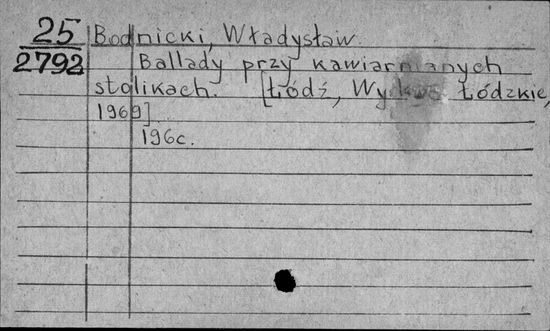 25 Bodnicki, Władysław.
2792 Ballady przy kawiarnianych
stolikach. [Łódź, Wyd-wo Łódzkie,
1969]
196c.